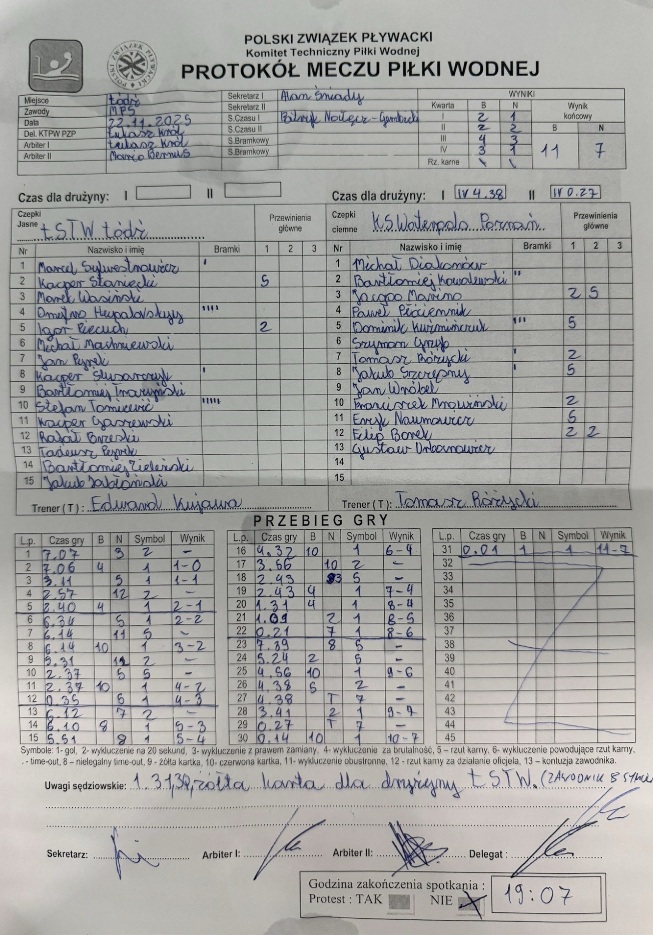 POLSKI ZWIĄZEK PŁYWACKI
Komitet Techniczny Piłki Wodnej
PROTOKÓŁ MECZU PIŁKI WODNEJ
Miejsce Łódź Sekretarz I Alan Śniady WYNIKI
Zawody MPS Sekretarz II Kwarta B N Wynik końcowy
Data 22.11.2025 S.Czasu I I 2 1 B N
Del. KTPW PZP Łukasz Król S.Czasu II II 2 2 11 7
Arbiter I Łukasz Król S.Bramkowy III 4 3
Arbiter II Marco Bernus S.Bramkowy IV 3 1
Rz. karne \ \
Czas dla drużyny: I II Czas dla drużyny: I IV 4.38 II IV 0.27
Czepki Jasne ŁSTW Łódź Przewinienia główne Czepki ciemne KS Waterpolo Poznań Przewinienia główne
Nr Nazwisko i imię Bramki 1 2 3 Nr Nazwisko i imię Bramki 1 2 3
1 Marcel Sylwestrowicz ' 1 Michał Diakonów
2 Kacper Stanecki 5 2 Bartłomiej Kowalewski "
3 Marek Wasiński 3 Jacopo Marino 2 5
4 Dmytro '''' 4 Paweł Płóciennik
5 Igor Piecuch 2 5 Dominik Kuźmińczuk ''' 5
6 Michał 6 Szymon Gryf
7 Jan Pyrek 7 Tomasz Różycki ' 2
8 Kacper Ślusarczyk ' 8 Jakub Szczęsny ' 5
9 Bartłomiej 9 Jan Wróbel
10 Stefan ''''' 10 Franciszek Mrowiński 2
11 Kacper Gaszewski 11 Eryk Naumowicz 5
12 Rafał Brzeski 12 Filip Borek 2 2
13 Tadeusz Pyrek 13 Gustaw Urbanowicz
14 Bartłomiej Zieleński 14
15 Jakub Jabłoński 15
Trener (T) : Edward Kujawa Trener (T) : Tomasz Różycki
PRZEBIEG GRY
L.p. Czas gry B N Symbol Wynik L.p. Czas gry B N Symbol Wynik L.p. Czas gry B N Symbol Wynik
1 7.07 3 2 – 16 4.32 10 1 6-4 31 0.01 1 1 11-7
2 7.06 4 1 1-0 17 3.56 10 2 – 32
3 3.11 5 1 1-1 18 2.43 3 5 – 33
4 2.57 12 2 – 19 2.43 4 1 7-4 34
5 2.40 4 1 2-1 20 1.31 4 1 8-4 35
6 6.34 5 1 2-2 21 1.09 2 1 8-5 36
7 6.14 11 5 – 22 0.21 7 1 8-6 37
8 6.14 10 1 3-2 23 7.39 8 5 – 38
9 5.31 12 2 – 24 5.24 2 5 – 39
10 2.37 5 5 – 25 4.56 10 1 9-6 40
11 2.37 10 1 4-2 26 4.38 5 2 – 41
12 0.35 5 1 4-3 27 4.38 T 7 – 42
13 6.12 7 2 – 28 3.41 2 1 9-7 43
14 6.10 8 1 5-3 29 0.27 T 7 – 44
15 5.51 8 1 5-4 30 0.14 10 1 10-7 45
Symbole: 1- gol, 2- wykluczenie na 20 sekund, 3- wykluczenie z prawem zamiany, 4- wykluczenie za brutalność, 5 – rzut karny, 6- wykluczenie powodujące rzut karny,
- time-out, 8 – nielegalny time-out, 9 - żółta kartka, 10- czerwona kartka, 11- wykluczenie obustronne, 12 - rzut karny za działanie oficjela, 13 – kontuzja zawodnika.
Uwagi sędziowskie: żółta karta dla drużyny ŁSTW. (ZAWODNIK
Sekretarz: Arbiter I: Arbiter II: Delegat :
Godzina zakończenia spotkania : 19:07
Protest : TAK NIE